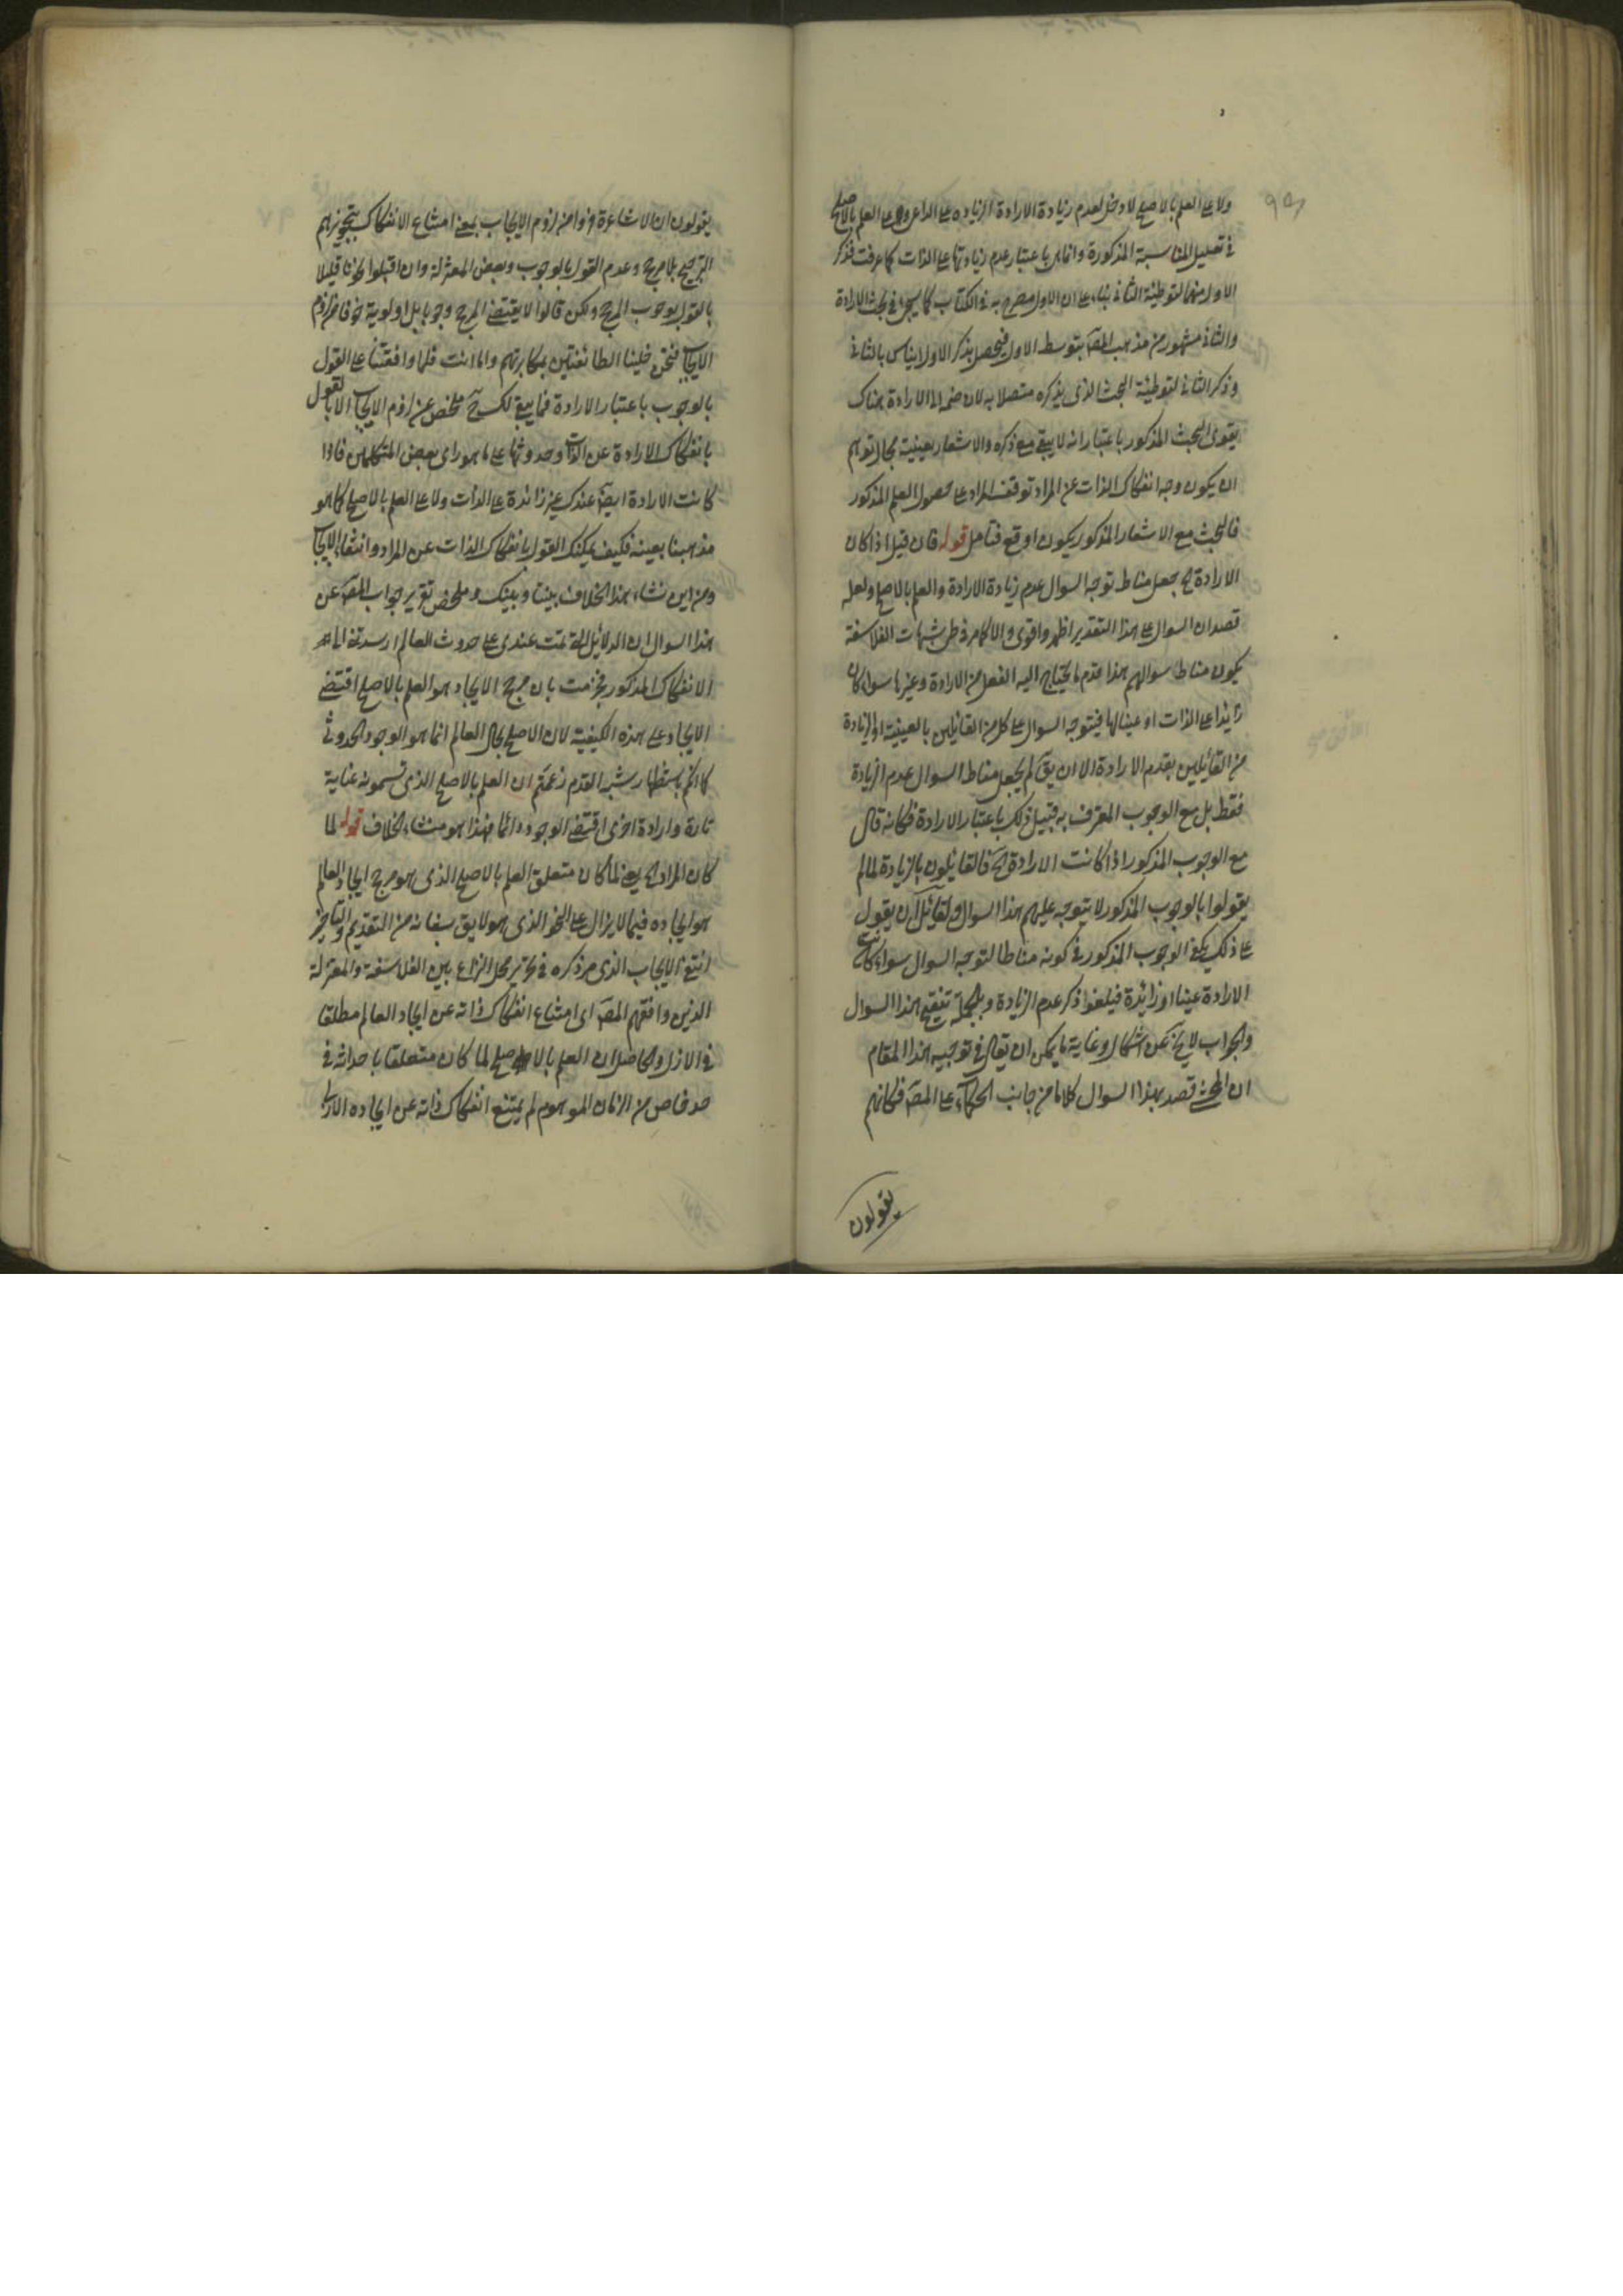 ولا على العلم بالاصلح لا دخل لعدم زيادة الارادة الزيادة على الداعي ولا على العلم بالاصلح
في تعليل المناسبة المذكورة وانما هي باعتبار عدم زيادتها على الذات كما عرفت فذكر
الاول منهما لتوطئة الثاني بناء على ان الاول مصرح به في الكتاب كما سيجيء في بحث الارادة
والثاني مشهور من مذهب المصـ بتوسط الاول فيحصل بذكر الاول ايناس بالثاني
وذكر الثاني لتوطئة البحث الذي يذكره متصلا به لان ضم الى الارادة هناك
يقوى البحث المذكور باعتبار انه لا يبقى مع ذكره والاشعار بعينية مجال توهم
ان يكون وجه انفكاك الذات عن المراد توقف المراد على حصول العلم المذكور
فالبحث مع الاشعار المذكور يكون اوقع فتامل قوله فان قيل اذا كان
الارادة الخ جعل مناط توجه السوال عدم زيادة الارادة والعلم بالاصلح ولعله
قصد ان السوال على هذا التقدير اظهر واقوى والا كلام في ظهر شبهات الفلاسفة
يكون مناط سوالهم هذا قدم ما يحتاج اليه الفعل من الارادة وغيرها سواء كان
زايدا على الذات او عينا لها فيتوجه السوال على كل من القائلين بالعينية او الزيادة
من القائلين بقدم الارادة الا ان يق لم يجعل مناط السوال عدم الزيادة
فقط بل مع الوجوب المعترف به قبيل ذلك باعتبار الارادة فكانه قال
مع الوجوب المذكور اذا كانت الارادة الخ فالقائلون بالزيادة لما لم
يقولوا بالوجوب المذكور لا يتوجه عليهم هذا السوال ولقائل ان يقول
على ذلك يكفي الوجوب المذكور في كونه مناطا لتوجه السوال سواء كانت
الارادة عينا او زائدة فيلغو ذكر عدم الزيادة وبالجملة تنقيح هذا السوال
والجواب لا يخ عن اشكال وغاية ما يمكن ان يقال في توجيه هذا المقام
ان المحشي قصد بهذا السوال كلاما من جانب الحكماء على المصـ فكانهم
يقولون
يقولون ان الاشاعرة فروا من لزوم الايجاب بمعنى امتناع الانفكاك بتجويزهم
الترجيح بلا مرجح وعدم القول بالوجوب وبعض المعتزلة وان اقبلوا نحونا قليلا
بالقول بوجوب المرجح ولكن قالوا لا يقتضي المرجح وجوبا بل اولوية خوفا من لزوم
الايجاب فنحن خلينا الطائفتين بمكابرتهم واما انت فلما وافقتنا على القول
بالوجوب باعتبار الارادة فما يبقى لك ح مخلص عن لزوم الايجاب الا بالقول
بانفكاك الارادة عن الذات وحدوثها على ما هو راى بعض المتكلمين فاذا
كانت الارادة ايضا عندك غير زائدة على الذات ولا على العلم بالاصلح كما هو
مذهبنا بعينه فكيف يمكنك القول بانفكاك الذات عن المراد وانتفاء الايجاب
ومن اين نشاء هذا الخلاف بيننا وبينك وملخص تقرير جواب المصـ عن
هذا السوال ان الدلائل لما تمت عندي على حدوث العالم ارشدتني الى هـ
الانفكاك المذكور فجزمت بان مرجح الايجاد هو العلم بالاصلح اقتضى
الايجاد على هذه الكيفية لان الاصلح بحال العالم انما هو الوجود الحدوثي
كما انكم باستظهار شبه القدم زعمتم ان العلم بالاصلح الذي تسمونه عناية
تارة وارادة اخرى اقتضى الوجود دائما فهذا هو منشاء الخلاف قوله لما
كان المراد الخ يعني لما كان متعلق العلم بالاصلح الذي هو مرجح ايجاد العالم
هو ايجاده فيما لا يزال على النحو الذي هو لايق بشانه من التقديم والتاخير
انتفى الايجاب الذي مر ذكره في تحرير محل النزاع بين الفلاسفة والمعتزلة
الذين وافقهم المصـ اى امتناع انفكاك ذاته عن ايجاد العالم مطلقا
في الازل والحاصل ان العلم بالاصلح لما كان متعلقا باحداثه في
حد خاص من الزمان الموهوم لم يمتنع انفكاك ذاته عن ايجاده الازلي